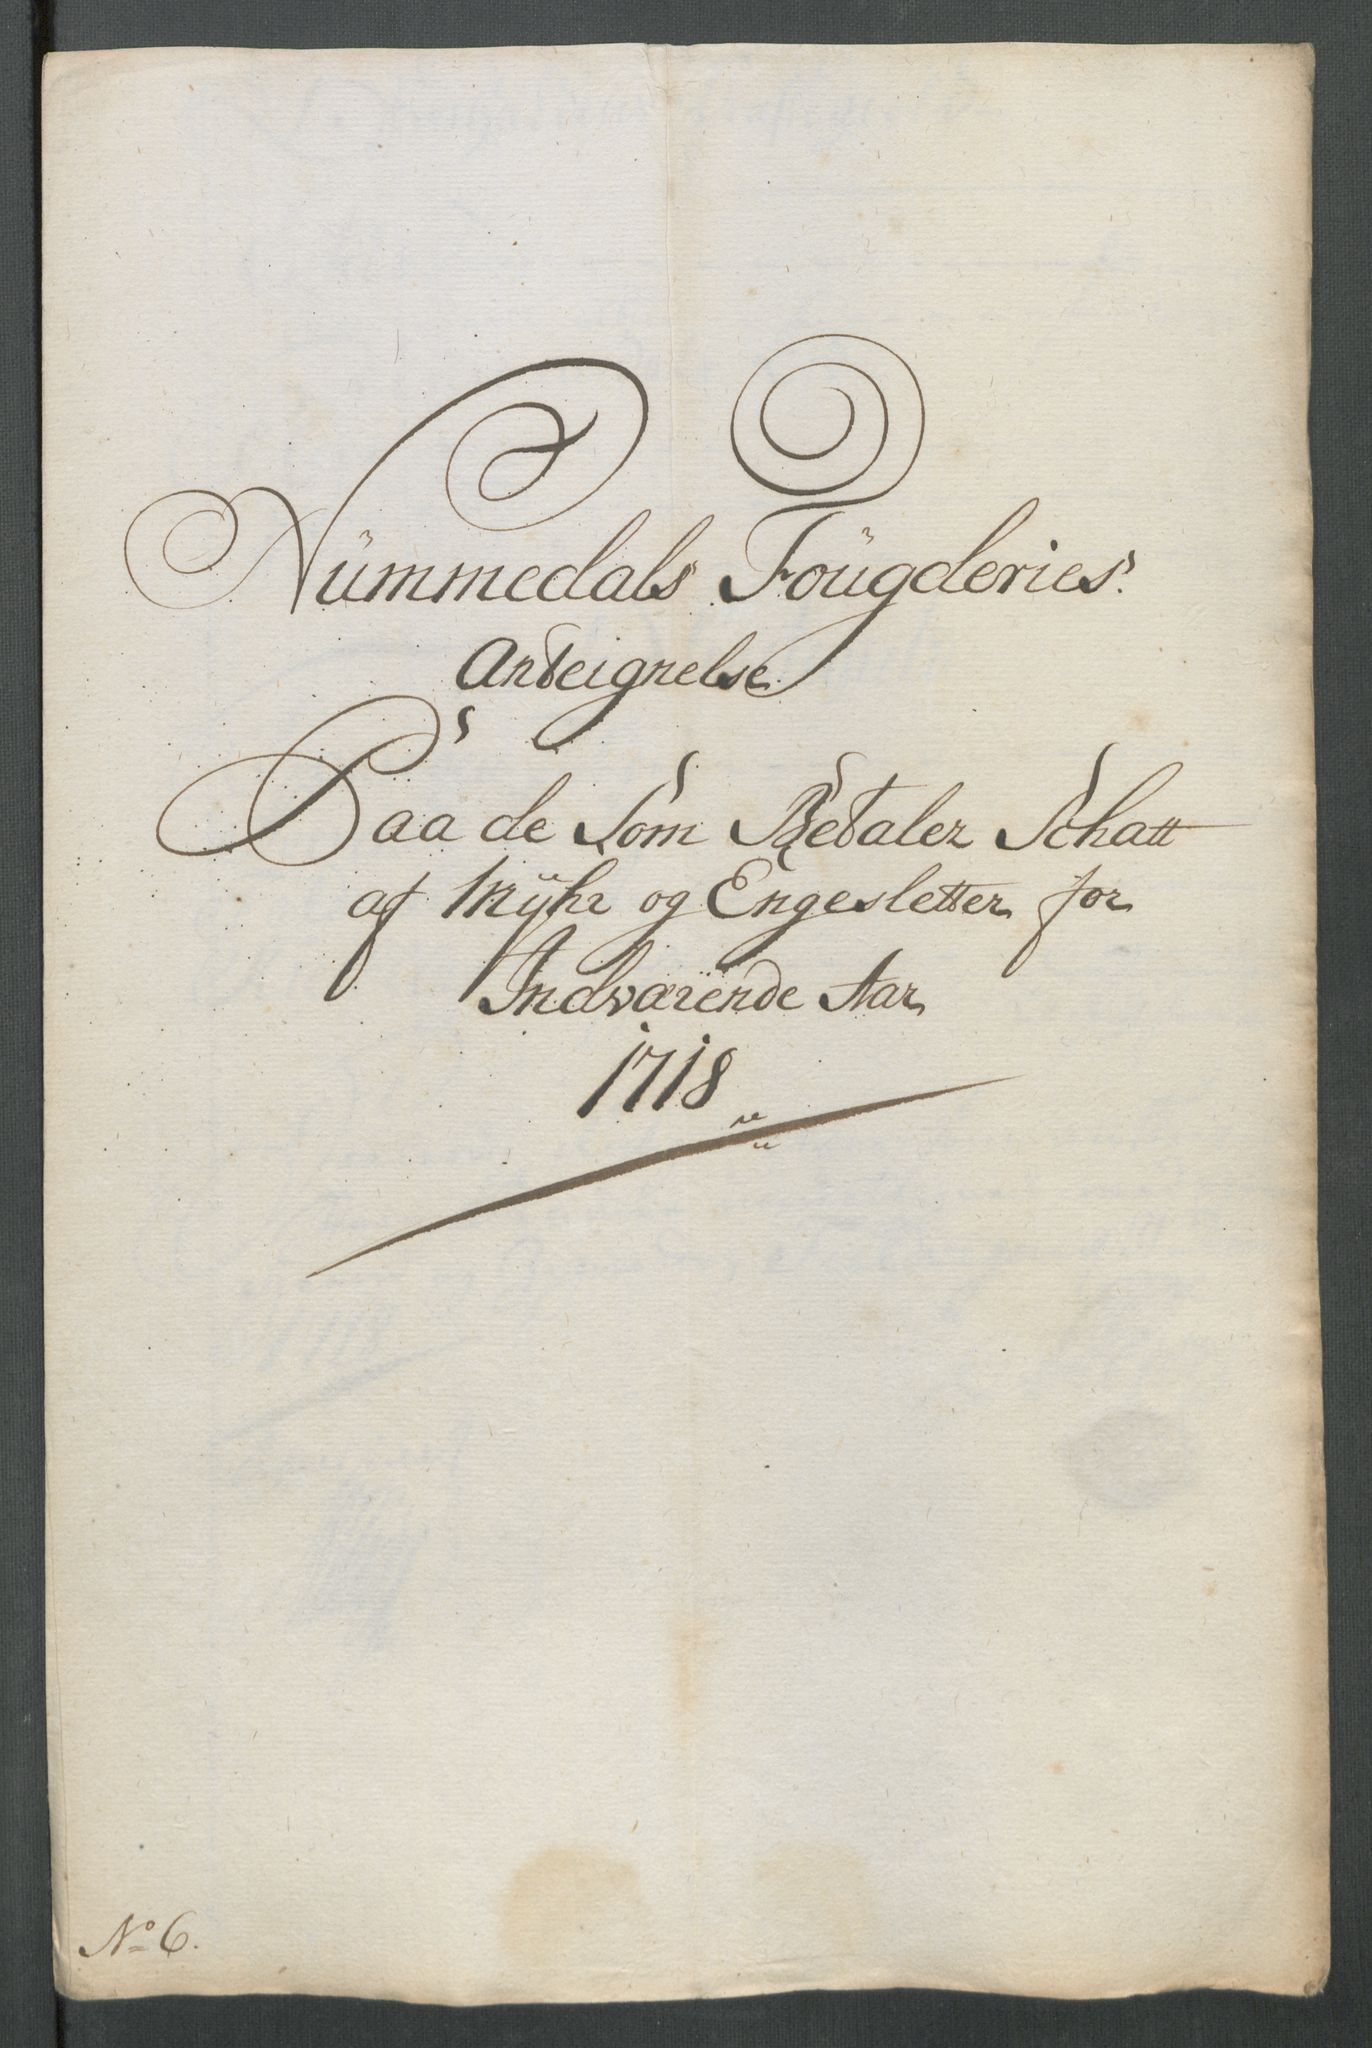 Nümmedals Foügderies
Anteignelse
Paa de Som Betaler Schatt
af Myhr og Engesletter for
Indværende Aar
1718
No 6.